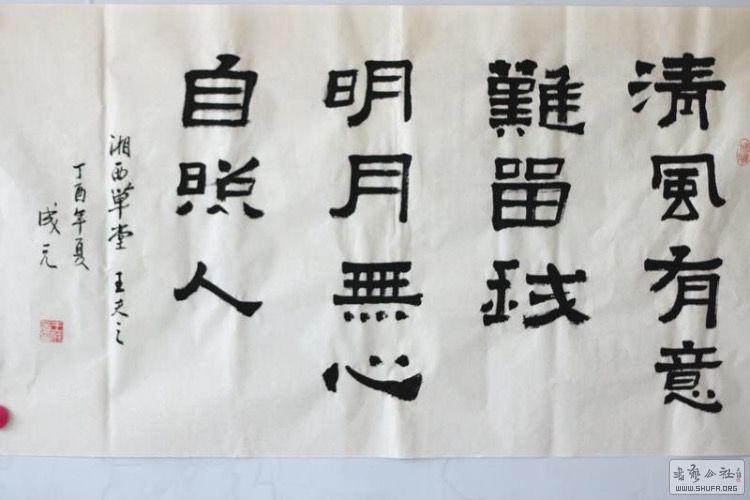 清風有意
難留我
明月無心
自照人
湘西草堂 王夫之
丁酉年夏
成元
書藝公社
WWW.SHUFA.ORG